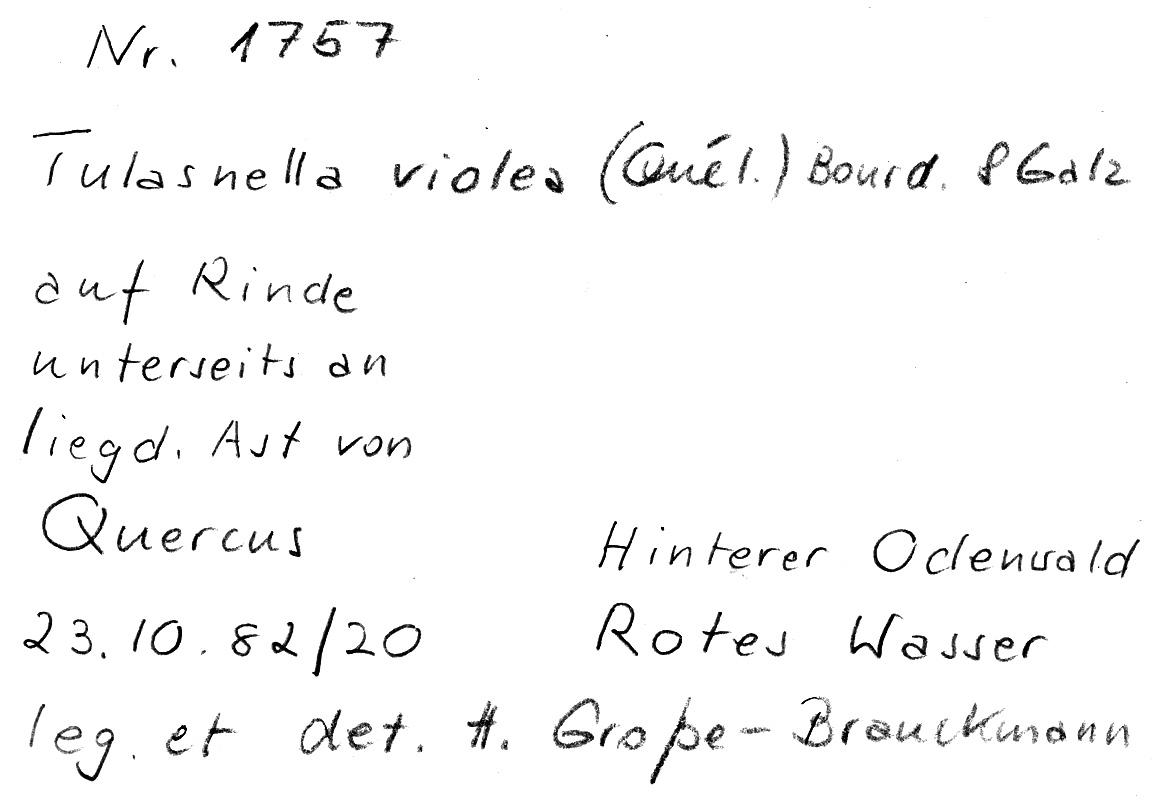 Nr. 1757
Tulasnella violea (Quél.) Bourd. & Galz
auf Rinde
unterseits an
liegd. Ast von
Quercus
Hinterer Odenwald
23.10.82/20
Rotes Wasser
leg. et det. H. Große-Brauckmann